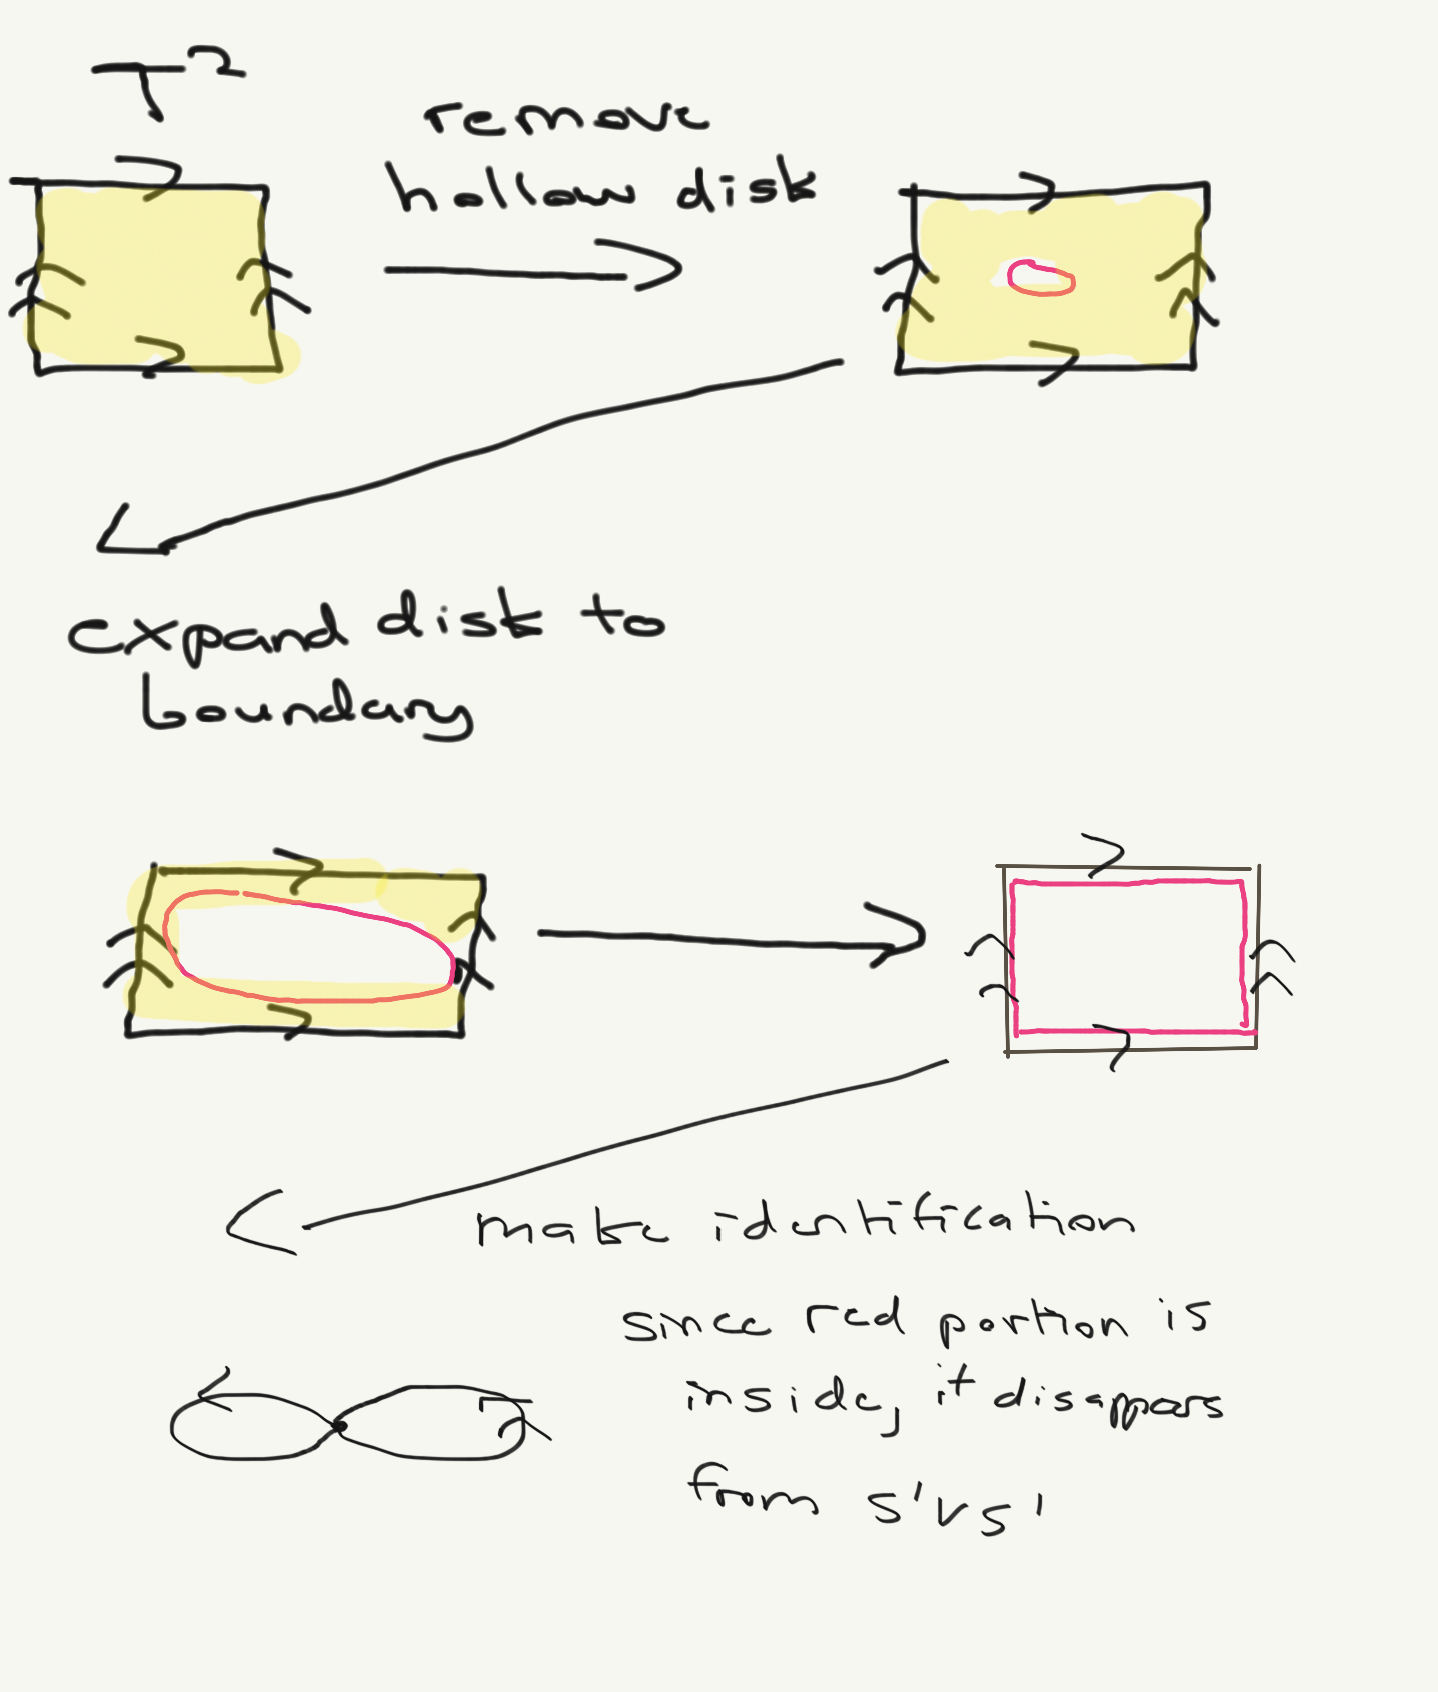 T²
remove
hollow disk
expand disk to
boundary
make identification
since red portion is
inside, it disappears
from S¹VS¹